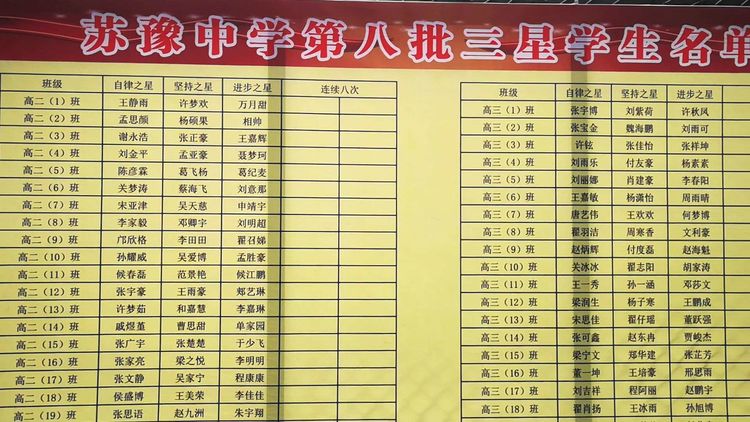 苏豫中学第八批三星学生名单
班级 自律之星 坚持之星 进步之星 连续八次
高二（1）班 王静雨 许梦欢 万月甜
高二（2）班 孟思颜 杨硕果 相帅
高二（3）班 谢永浩 张正豪 王嘉辉
高二（4）班 刘金平 孟亚豪 聂梦珂
高二（5）班 陈彦霖 葛飞杨 葛纪麦
高二（6）班 关梦涛 蔡海飞 刘意那
高二（7）班 宋亚津 吴天慈 申靖宇
高二（8）班 李家毅 邓卿宇 刘明超
高二（9）班 邝欣格 李田田 翟召娣
高二（10）班 孙耀威 吴爱博 孟胜豪
高二（11）班 候春磊 范景艳 候江鹏
高二（12）班 张宇豪 王雨豪 郑艺琳
高二（13）班 许梦茹 和嘉慧 李嘉琳
高二（14）班 戚煜堇 曹思甜 单家园
高二（15）班 张广宇 张楚楚 于少飞
高二（16）班 张家亮 梁之悦 李明明
高二（17）班 张文静 吴家宁 程康康
高二（18）班 侯盛博 王美荣 李佳佳
高二（19）班 张思语 赵九洲 朱宇翔
班级 自律之星 坚持之星 进步之星
高三（1）班 张宇博 刘紫荷 许秋风
高三（2）班 张宝金 魏海鹏 刘雨可
高三（3）班 许铉 张佳怡 张祥坤
高三（4）班 刘雨乐 付友豪 杨素素
高三（5）班 刘丽娜 肖建豪 李春阳
高三（6）班 王嘉敏 杨潇怡 周雨晴
高三（7）班 唐艺伟 王欢欢 何梦博
高三（8）班 翟羽洁 周寒香 文利豪
高三（9）班 赵炳辉 付度磊 赵海魁
高三（10）班 关冰冰 翟志阳 胡家涛
高三（11）班 王一秀 孙一涵 邓莎文
高三（12）班 梁润生 杨子寒 王鹏成
高三（13）班 宋思佳 翟仔瑶 董跃强
高三（14）班 张可鑫 赵东冉 贾峻杰
高三（15）班 梁宁文 郑华建 张芷芳
高三（16）班 董一坤 王培豪 邢思雨
高三（17）班 刘吉祥 程阿丽 赵鹏宇
高三（18）班 翟肖扬 王冰雨 孙旭博